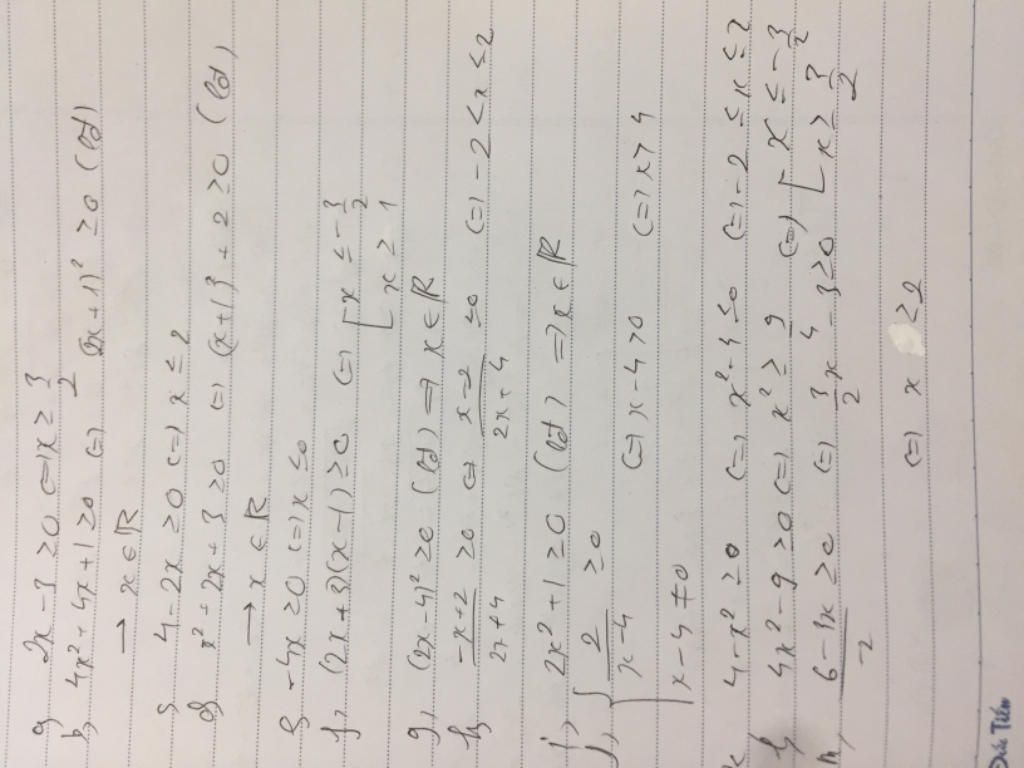 a, 2x - 3 ≥ 0 <=> x ≥ 3/2
b, 4x² + 4x + 1 ≥ 0 <=> (2x + 1)² ≥ 0 (lđ)
→ x ∈ R
c, 4 - 2x ≥ 0 <=> x ≤ 2
d, x² + 2x + 3 ≥ 0 <=> (x + 1)² + 2 ≥ 0 (lđ)
→ x ∈ R
e, -4x ≥ 0 <=> x ≤ 0
f, (2x + 3)(x - 1) ≥ 0 <=> [ x ≤ -3/2
x ≥ 1
g, (2x - 4)² ≥ 0 (lđ) => x ∈ R
h, (-x + 2)/(2x + 4) ≥ 0 <=> (x - 2)/(2x + 4) ≤ 0 <=> -2 < x ≤ 2
i, 2x² + 1 ≥ 0 (lđ) => x ∈ R
j, { 2/(x - 4) ≥ 0
<=> x - 4 > 0 <=> x > 4
x - 4 ≠ 0
k 4 - x² ≥ 0 <=> x² - 4 ≤ 0 <=> -2 ≤ x ≤ 2
l, 4x² - 9 ≥ 0 <=> x² ≥ 9/4 <=> [ x ≤ -3/2
x ≥ 3/2
m, <=> 3/2 x - 3 ≥ 0
<=> x ≥ 2
Tiến